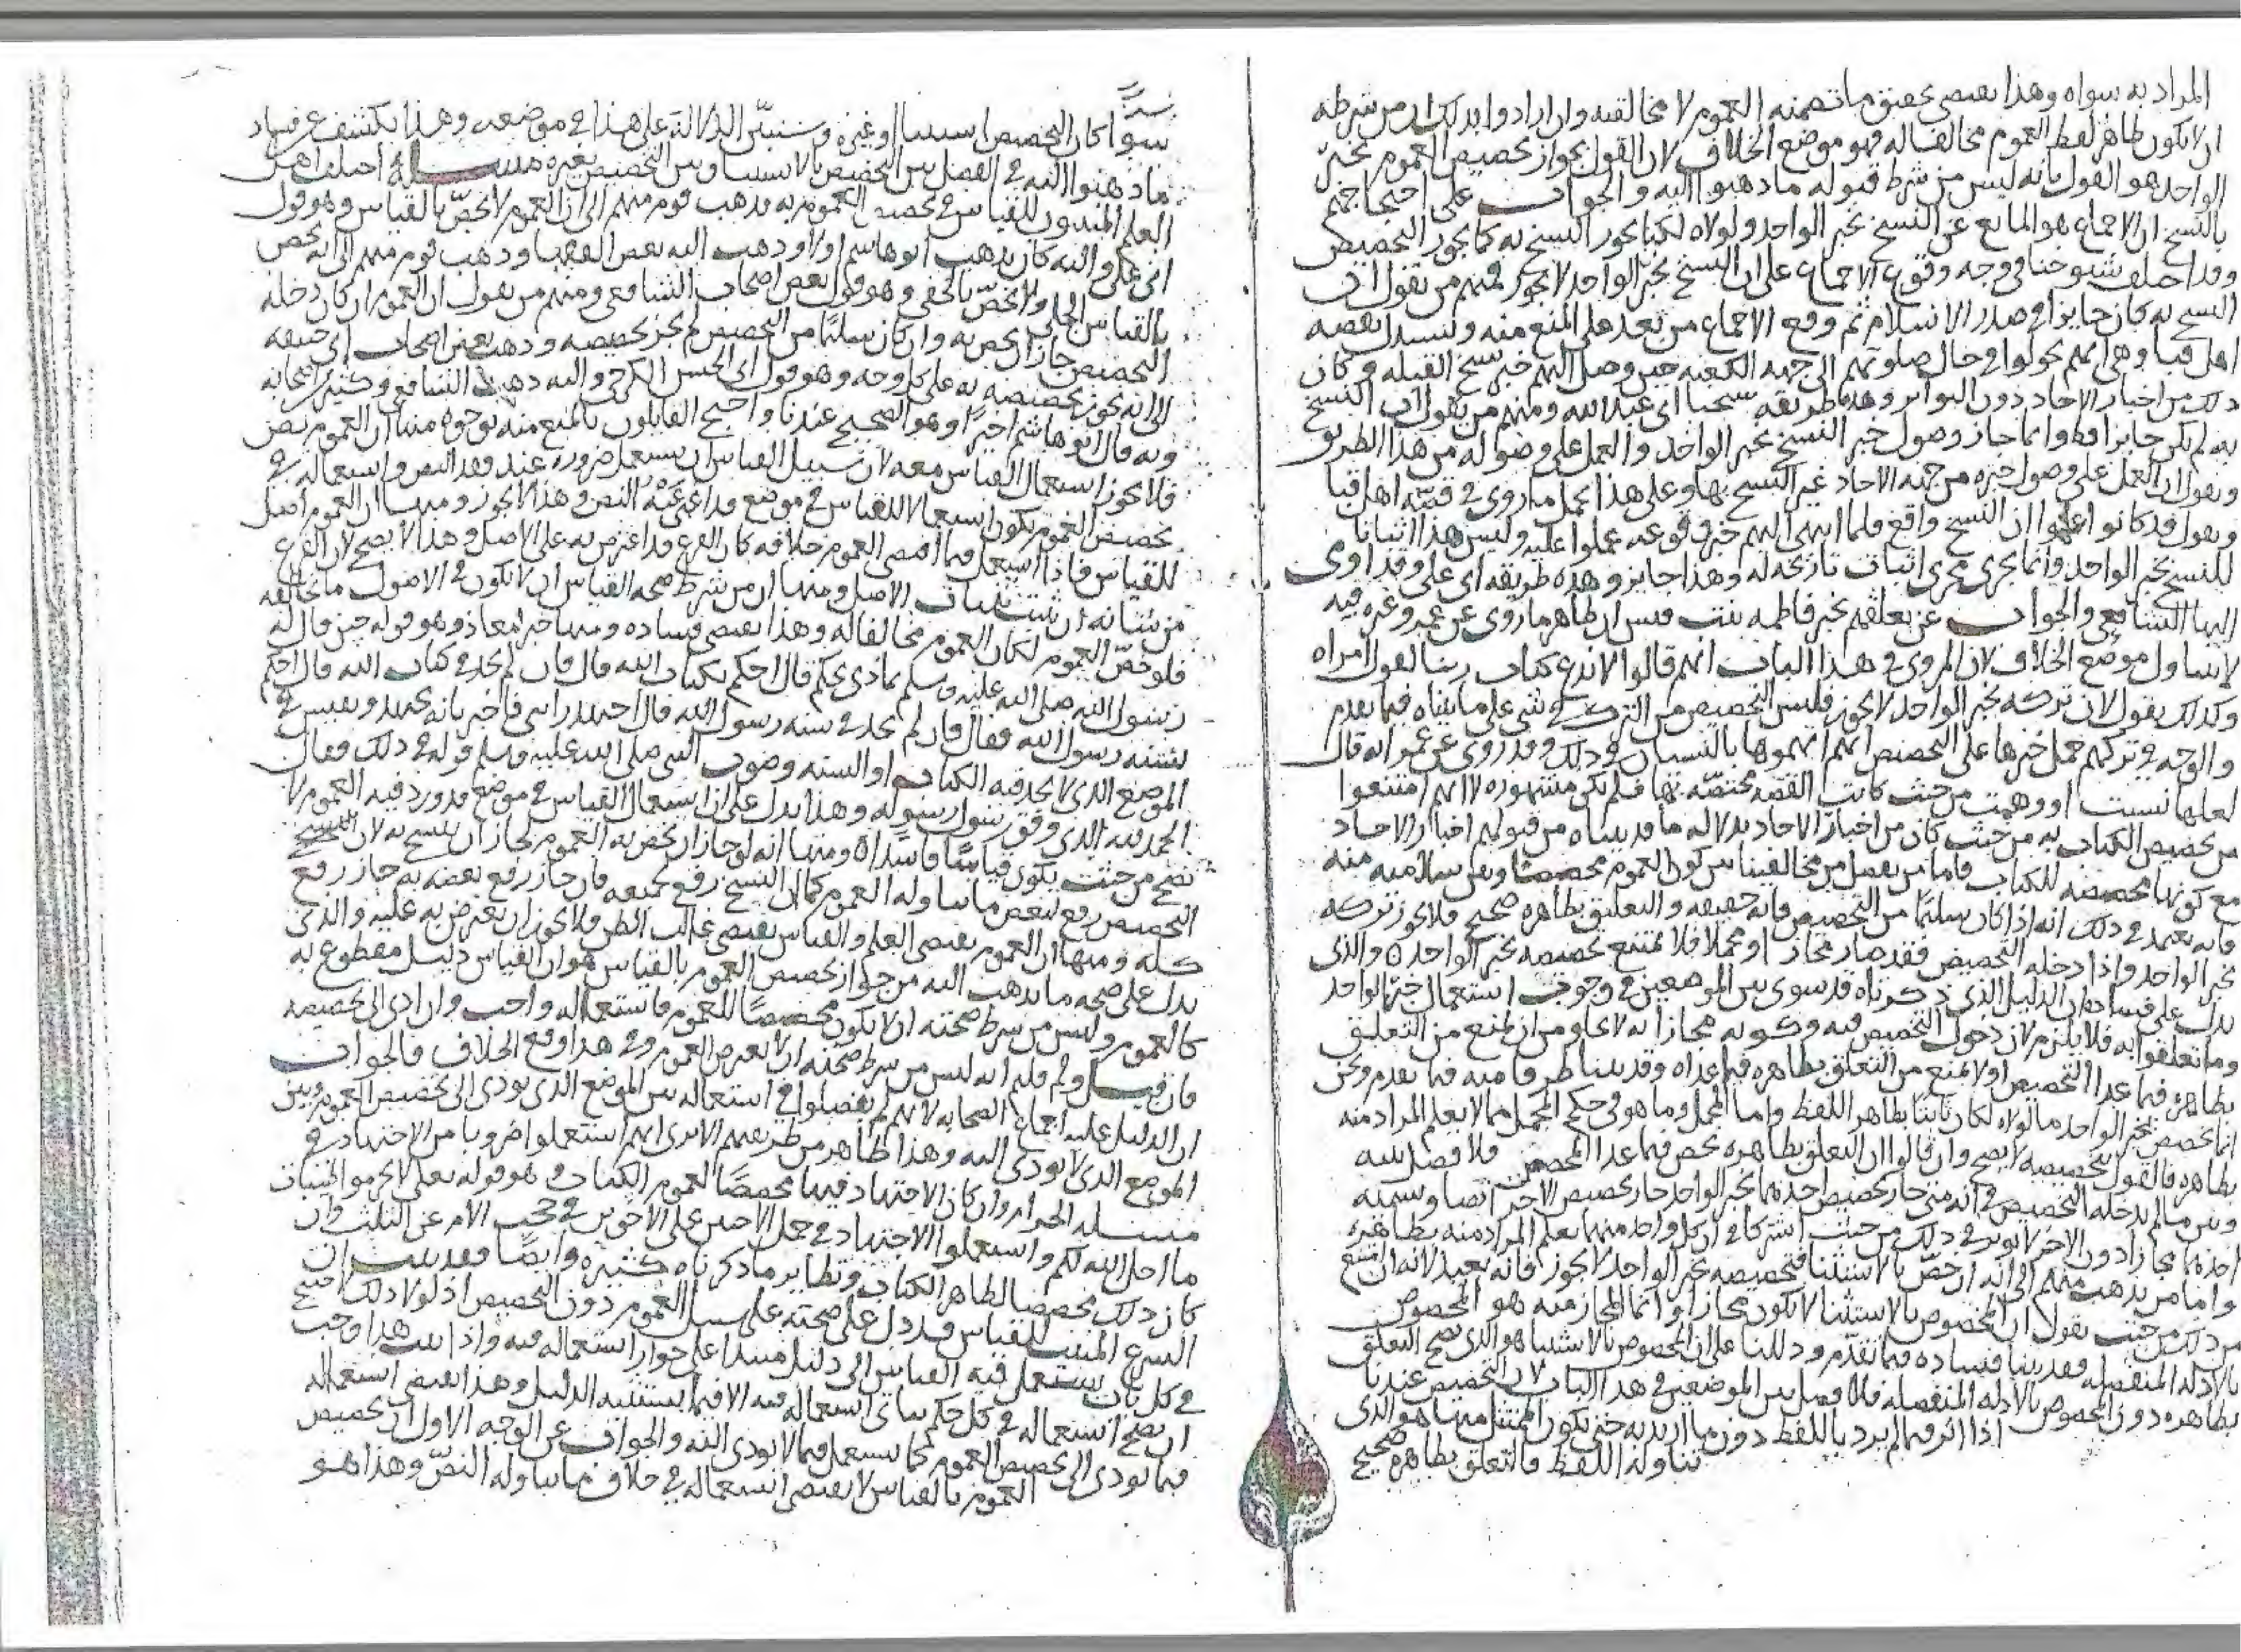 المراد به سواه وهذا يقتضي تحقيق ما تضمنه العموم لا مخالفته وان ارادوا بذلك ان من شرطه
ان لا يكون ظاهر لفظ العموم مخالفا له فهو موضع الخلاف لان القول بجواز تخصيص العموم بخبر
الواحد هو القول بانه ليس من شرط قبوله ما ذهبوا اليه والجواب على احتجاجهم
بالنسخ ان الاجماع هو المانع عن النسخ بخبر الواحد ولولاه لكنا نجوز النسخ به كما نجوز التخصيص
وقد اختلف شيوخنا في وجه وقوع الاجماع على ان النسخ بخبر الواحد لا يجوز فمنهم من يقول ان
النسخ به كان جايزا في صدر الاسلام ثم وقع الاجماع من بعد على المنع منه ويستدل بقصه
اهل قبا وهي انهم تحولوا في حال صلوتهم الى جهه الكعبه حين وصل اليهم خبر نسخ القبله وكان
ذلك من اخبار الاحاد دون التواتر وهذه طريقه شيخنا ابي عبد الله ومنهم من يقول ان النسخ
به لم يكن جايزا قط وانما جاز وصول خبر النسخ بخبر الواحد والعمل على وصوله من هذا الطريق
ونقول ان العمل على وصول خبره من جهه الاحاد غير النسخ بها وعلى هذا يحمل ما روي في قصه اهل قبا
ونقول قد كانوا اعلموا ان النسخ واقع فلما انتهى اليهم خبر وقوعه عملوا عليه وليس هذا اثباتا
للنسخ بخبر الواحد وانما يجري مجرى اثبات تاريخه له وهذا جايز وهذه طريقه ابي علي وقد اوى
اليها الشافعي والجواب عن تعلقهم بخبر فاطمه بنت قيس ان ظاهر ما روي عن عمر وغيره فيه
لا يتناول موضع الخلاف لان المروي في هذا الباب انهم قالوا لا ندع كتاب ربنا لقول امراه
وكذلك نقول لان تركه بخبر الواحد لا يجوز فليس التخصيص من الترك في شي على ما بيناه فيما تقدم
والوجه في تركهم حمل خبرها على التخصيص انهم اتهموها بالنسيان في ذلك وقد روي عن عمر انه قال
لعلها نسيت او وهمت من حيث كانت القصه مختصه بها فلم تكن مشهوره لا انهم امتنعوا
من تخصيص الكتاب به من حيث كان من اخبار الاحاد بدلاله ما قد بيناه من قبولهم اخبار الاحاد
مع كونها مخصصه للكتاب فاما من يفصل من مخالفينا بين كون العموم مخصصا وبين سلامته منه
فانه يعتمد في ذلك انه اذا كان سليما من التخصيص فانه حقيقه والتعليق بظاهره صحيح فلا يجوز تركه
بخبر الواحد واذا دخله التخصيص فقد صار مجازا او مجملا فلا يمتنع تخصيصه بخبر الواحد والذي
يدل على فساده ان الدليل الذي ذكرناه قد سوى بين الموضعين في وجوب استعمال خبر الواحد
وما تعلقوا به فلا يلزم لان دخول التخصيص فيه وكونه مجازا به لا يخلو من ان يمنع من التعلق
بظاهره فيما عدا التخصيص او لا يمنع من التعلق بظاهره فيما عداه وقد بينا طرفا منه فيما تقدم ونحن
انما نخصص بخبر الواحد ما لولاه لكان ثابتا بظاهر اللفظ واما المجمل وما هو في حكم المجمل مما لا يعلم المراد منه
بظاهره فالقول بتخصيصه لا يصح وان قالوا ان التعلق بظاهره يصح فيما عدا المخصص فلا فصل بينه
وبين ما لم يدخله التخصيص في انه متى جاز تخصيص احدهما بخبر الواحد جاز تخصيص الاخر ايضا وتسميه
احدهما مجازا دون الاخر لا يوثر في ذلك من حيث اشتركا في ان كل واحد منهما يعلم المراد منه بظاهره
واما من يذهب منهم الى انه ان خص بالاستثنا فتخصيصه بخبر الواحد لا يجوز فانه بعيد لانه ان امتنع
من ذلك من حيث يقول ان المخصوص بالاستثنا لا يكون مجازا وانما المجاز منه هو المخصوص
بالادله المنفصله فقد بينا فساده فيما تقدم ودللنا على ان المخصوص بالاستثنا هو الذي يصح التعلق
بظاهره دون المخصوص بالادله المنفصله فلا فصل بين الموضعين في هذا الباب لان التخصيص عندنا
اذا اثر فيما لم يرد باللفظ دون ما اريد به حتى يكون الممتثل منهما هو الذي
تناوله اللفظ فالتعلق بظاهره صحيح
سوا كان التخصيص استثنا او غيره وسنبين الدلاله على هذا في موضعه وهذا يكشف عن فساد
ما ذهبوا اليه في الفصل بين التخصيص بالاستثنا وبين التخصيص بغيره مسله اختلف اهل
العلم المثبتون للقياس في تخصيص العموم به فذهب قوم منهم الى ان العموم لا يخص بالقياس وهو قول
ابي علي واليه كان يذهب ابو هاشم اولا وذهب اليه بعض الفقها وذهب قوم منهم الى انه يخص
بالقياس الجلي ولا يخص بالخفي وهو قول بعض اصحاب الشافعي ومنهم من يقول ان العموم ان كان دخله
التخصيص جاز ان يخص به وان كان سليما من التخصيص لم يجز تخصيصه وذهب بعض اصحاب ابي حنيفه
الى انه يجوز تخصيصه به على كل وجه وهو قول ابي الحسن الكرخي واليه ذهب الشافعي وكثير من اصحابه
وبه قال ابو هاشم اخيرا وهو الصحيح عندنا واحتج القايلون بالمنع منه بوجوه منها ان العموم نص
فلا يجوز استعمال القياس معه لان سبيل القياس ان يستعمل ضروره عند فقد النص واستعماله في
تخصيص العموم يكون استعمالا للقياس في موضع قد اغنى عنه النص وهذا لا يجوز ومنها ان العموم اصل
للقياس فاذا استعمل فيما اقتضى العموم خلافه كان الفرع قد اعترض به على الاصل وهذا لا يصح لان الفرع
من شانه ان يثبت بثبات الاصل ومنها ان من شرط صحه القياس ان لا يكون في الاصول ما يخالفه
فلو خص العموم لكان العموم مخالفا له وهذا يقتضي فساده ومنها خبر معاذ وهو قوله حين قال له
رسول الله صلى الله عليه وسلم بماذى تحكم قال احكم بكتاب الله قال فان لم تجد في كتاب الله قال احكم
بسنه رسول الله فقال فان لم تجد في سنه رسول الله قال اجتهد رايي فاخبر بانه يجتهد ويقيس في
الموضع الذي لا يجد فيه الكتاب او السنه وصوب النبي صلى الله عليه وسلم قوله في ذلك وقال
الحمد لله الذي وفق رسول رسوله وهذا يدل على ان استعمال القياس في موضع قد ورد فيه العموم لا
يصح من حيث يكون قياسا فاسدا ومنها انه لو جاز ان يخص به العموم لجاز ان ينسخ به لان
التخصيص رفع لبعض ما تناوله العموم كما ان النسخ رفع لجميعه فان جاز رفع بعضه به جاز رفع
كله ومنها ان العموم يقتضي العلم والقياس يقتضي غالب الظن فلا يجوز ان يعترض به عليه والذي
يدل على صحه ما نذهب اليه من جواز تخصيص العموم بالقياس هو ان القياس دليل مقطوع به
كالعموم وليس من شرط صحته ان لا يكون مخصصا للعموم فاستعماله واجب وان ادى الى تخصيصه
فان قيل ولم قلتم انه ليس من شرط صحته ان لا يعترض العموم وفي هذا وقع الخلاف فالجواب
ان الدليل عليه اجماع الصحابه لانهم لم يفصلوا في استعماله بين الموضع الذي يودي الى تخصيص العموم وبين
الموضع الذي لا يودي اليه وهذا ظاهر من طريقتهم الا ترى انهم استعملوا ضروبا من الاجتهاد في
مسله الحرام وان كان الاجتهاد فيها مخصصا لعموم الكتاب وهو قوله تعلى لا تحرموا طيبات
ما احل الله لكم واستعملوا الاجتهاد في حمل الاختين على الاخوين في حجب الام عن الثلث وان
كان ذلك مخصصا لظاهر الكتاب ونظاير ما ذكرناه كثيره وايضا فقد ثبت ان
الشرع المثبت للقياس قد دل على صحته على سبيل العموم دون التخصيص اذ لولا ذلك لاحتيج
في كل باب يستعمل فيه القياس الى دليل مبتدا على جواز استعماله فيه واذا ثبت هذا وجب
ان يصح استعماله في كل حكم يتاتى استعماله فيه الا فيما يستثنيه الدليل وهذا يقتضي استعماله
فيما يودي الى تخصيص العموم كما يستعمل فيما لا يودي اليه والجواب عن الوجه الاول ان تخصيص
العموم بالقياس لا يقتضي استعماله في خلاف ما تناوله النص وهذا هو